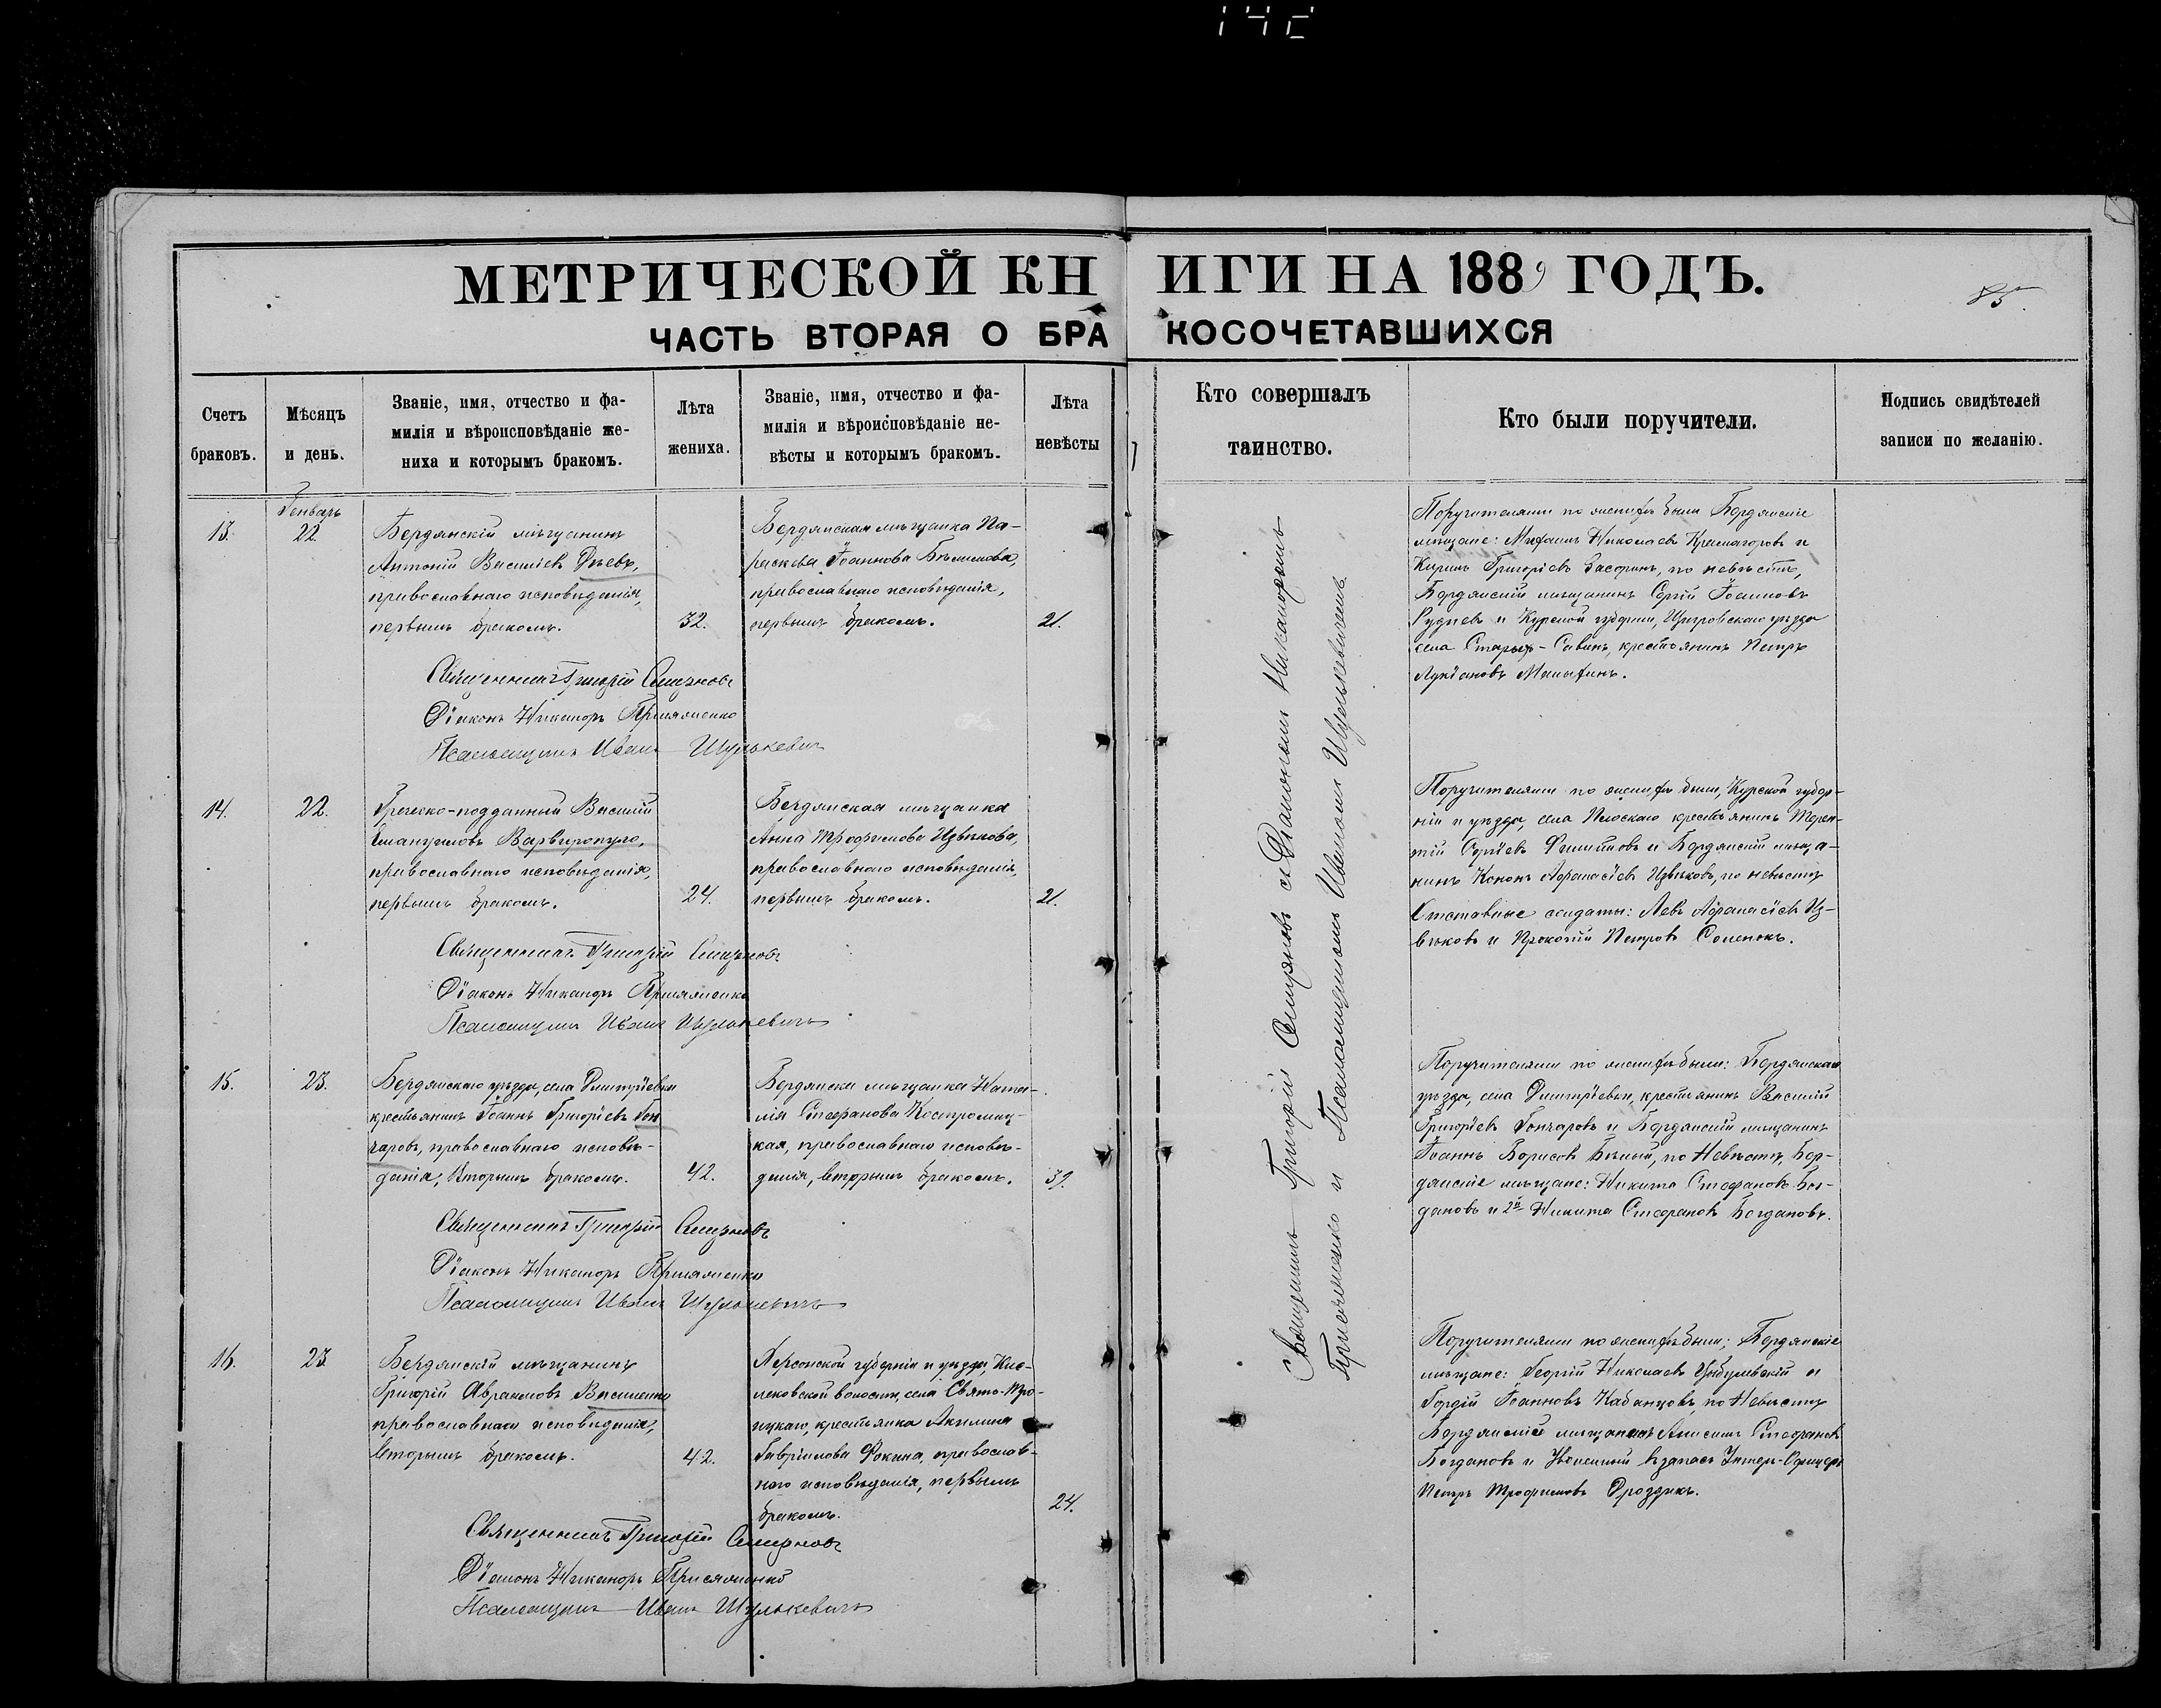 142
МЕТРИЧЕСКОЙ КНИГИ НА 1889 ГОДЪ.
85
ЧАСТЬ ВТОРАЯ О БРАКОСОЧЕТАВШИХСЯ
Счетъ
браковъ.
Мѣсяцъ
и день.
Званіе, имя, отчество и фа-
милія и вѣроисповѣданіе же-
ниха и которымъ бракомъ.
Лѣта
жениха.
Званіе, имя, отчество и фа-
милія и вѣроисповѣданіе не-
вѣсты и которымъ бракомъ.
Лѣта
невѣсты
Кто совершалъ
таинство.
Кто были поручители.
Подпись свидѣтелей
записи по желанію.
Генварь
13.
22
Бердянскій мѣщанинъ
Антоній Василіевъ
православнаго исповѣданія,
первымъ бракомъ.
32.
Бердянская мѣщанка Па-
раскева Іоаннова
православнаго исповѣданія,
первымъ бракомъ.
21.
Поручителями по женихѣ были Бердянскіе
мѣщане: Николаевъ и
Григоріевъ по невѣстѣ,
Бердянскій мѣщанинъ Сергій Іоанновъ
Рудневъ и Курской губерніи, Щигровскаго уѣзда
села крестьянинъ Петръ
Лукіановъ
Священникъ Григорій Смирновъ
Діаконъ Никаноръ Присяженко
Псаломщикъ Иванъ Шулькевичъ
14.
22.
Греческо-подданный Василій
Емануиловъ Варвиропуло,
православнаго исповѣданія,
первымъ бракомъ.
24.
Бердянская мѣщанка
Анна Трофимова Извѣкова,
православнаго исповѣданія,
первымъ бракомъ.
21.
Поручителями по женихѣ были, Курской губер-
ніи и уѣзда, села крестьянинъ Терен-
тій Сергіевъ и Бердянскій мѣща-
нинъ Кононъ Афанасіевъ Извѣковъ, по невѣстѣ
Отставные солдаты: Левъ Афанасіевъ Из-
вѣковъ и Прокопій Петровъ
Священникъ Григорій Смирновъ
Діаконъ Никаноръ Присяженко
Псаломщикъ Иванъ Шулькевичъ
15.
23.
Бердянскаго уѣзда, села Дмитріевки
крестьянинъ Іоаннъ Григоріевъ Гон-
чаровъ, православнаго исповѣ-
данія, вторымъ бракомъ.
42.
Бердянска мѣщанка Ната-
лія Стефанова Костромиц-
кая, православнаго исповѣ-
данія, вторымъ бракомъ.
39.
Поручителями по женихѣ были: Бердянскаго
уѣзда, села Дмитріевки, крестьянинъ Василій
Григоріевъ Гончаровъ и Бердянскій мѣщанинъ
Іоаннъ Борисовъ Бѣлый, по Невѣстѣ, Бер-
дянскіе мѣщане: Никита Стефановъ Бог-
дановъ и 2й Никита Стефановъ Богдановъ.
Священникъ Григорій Смирновъ
Діаконъ Никаноръ Присяженко
Псаломщикъ Иванъ Шулькевичъ
16.
23
Бердянскій мѣщанинъ
Григорій Авраамовъ Василенко
православнаго исповѣданія,
вторымъ бракомъ.
42.
Херсонской губерніи и уѣзда,
волости, села Свято-Тро-
ицкаго, крестьянка Акилина
Гавріилова Фокина, православ-
наго исповѣданія, первымъ
бракомъ.
24.
Поручителями по женихѣ были; Бердянскіе
мѣщане: Георгій Николаевъ Цибулевскій и
Гордій Іоанновъ Кабанцовъ, по Невѣстѣ
Бердянскій мѣщанинъ Анисимъ Стефановъ
Богдановъ и Уволенный въ запасъ Унтеръ-Офицеръ
Петръ Трофимовъ Дроздикъ.
Священникъ Григорій Смирновъ
Діаконъ Никаноръ Присяженко
Псаломщикъ Иванъ Шулькевичъ
Священникъ Григорій Смирновъ съ Діакономъ Никаноромъ
Присяженко и Псаломщикомъ Иваномъ Шулькевичемъ.